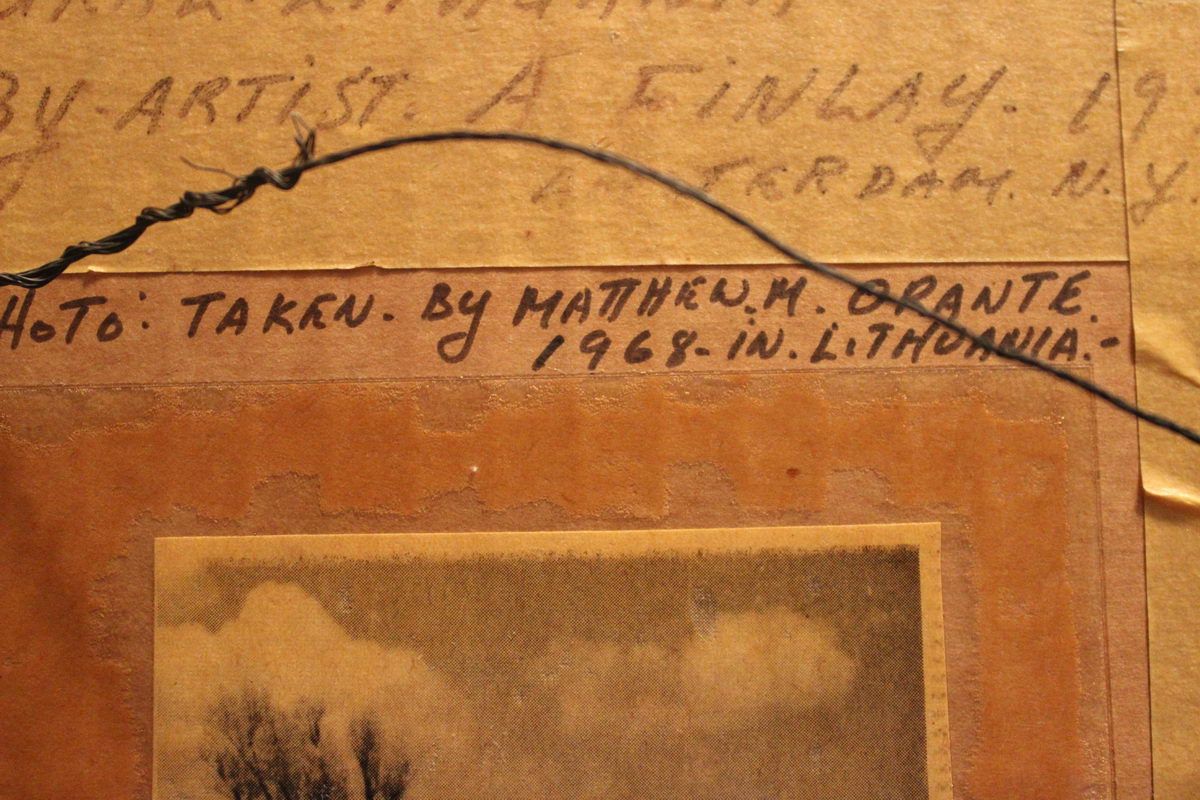 BY ARTIST. A FINLAY. 19
TERDAM. N.Y.
HOTO: TAKEN. BY MATTHEW. M. ORANTE.
1968- IN. LITHUANIA.-